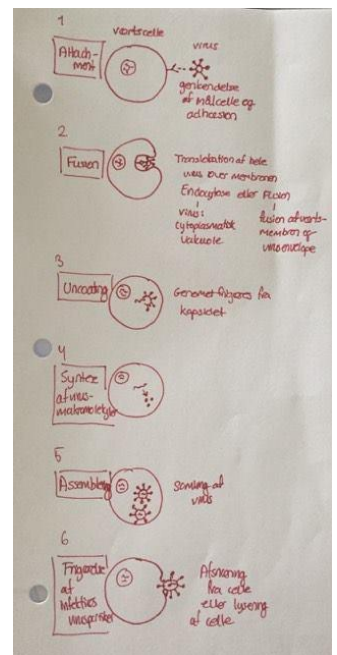 1
Værtscelle
virus
Attach-
ment
genkendelse
af målcelle og
adhæsion
2
Fusion
Translokation af hele
virus over membranen
Endocytose eller Fusion
virus i
cytoplasmatisk
vakuole
fusion af værts-
membran og
virusenvelope
3
Uncoating
Genomet frigøres fra
kapsidet
4
Syntese
af virus-
makromolekyler
5
Assembly
Samling af
virus
6
Frigørelse
af
infektiøs
viruspartikler
Afsnøring
fra celle
eller lysering
af celle